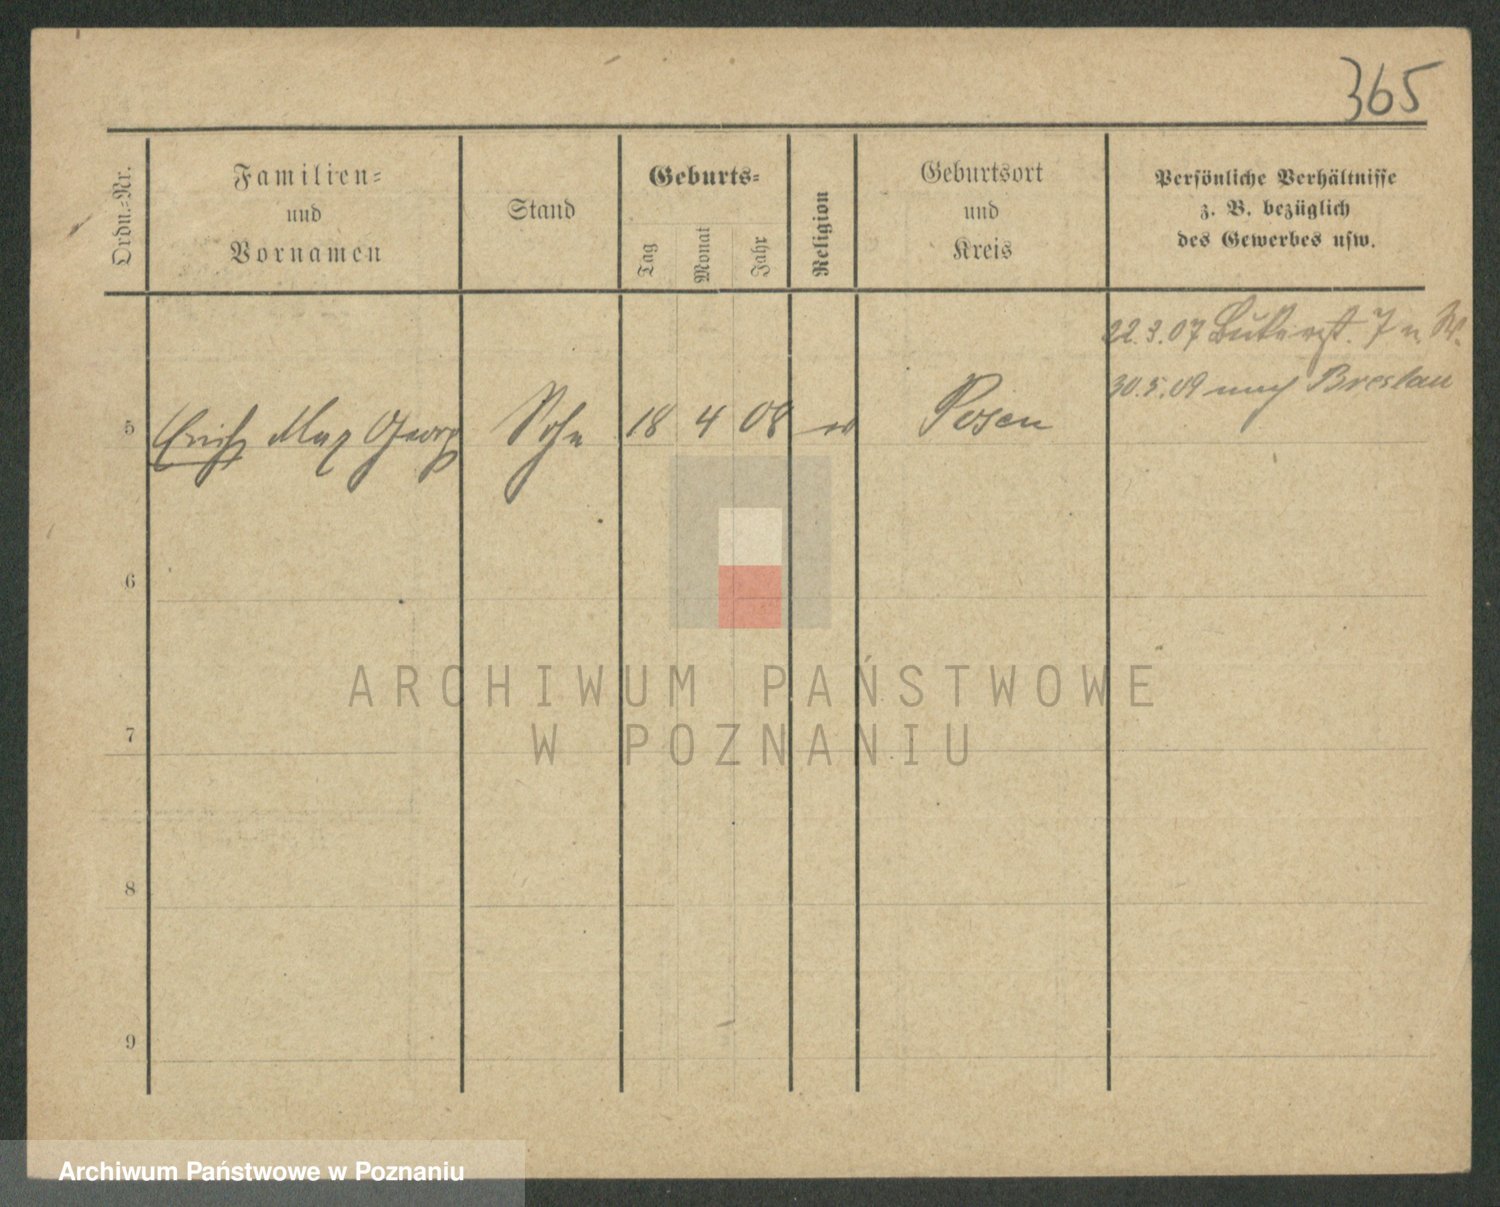 365
Ordn.-Nr.
Familien-
und
Vornamen
Stand
Geburts-
Tag
Monat
Jahr
Religion
Geburtsort
und
Kreis
Persönliche Verhältnisse
z. B. bezüglich
des Gewerbes usw.
22.3.07 7 n. W.
30.5.09 nach Breslau
5 Erich Max Georg Sohn 18 4 08 ev Posen
6
7
8
9
ARCHIWUM PAŃSTWOWE
W POZNANIU
Archiwum Państwowe w Poznaniu